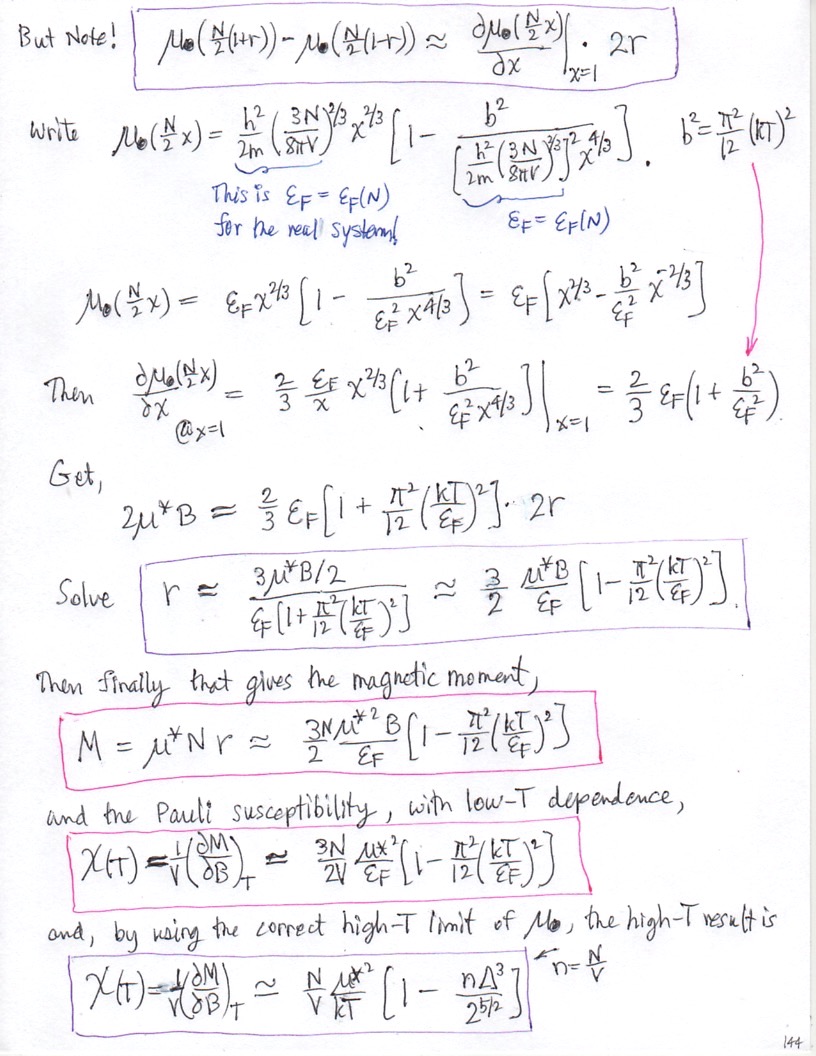 But Note! μ₀(N/2(1+r)) - μ₀(N/2(1-r)) ≈ ∂μ₀(N/2 x)/∂x |ₓ₌₁ · 2r
Write μ₀(N/2 x) = h²/2m (3N/8πV)^2/3 x^2/3 [1 - b²/[h²/2m (3N/8πV)^2/3]² x^4/3]. b² = π²/12 (kT)²
This is ε_F = ε_F(N)
for the real system!
ε_F = ε_F(N)
μ₀(N/2 x) = ε_F x^2/3 [1 - b²/ε_F² x^4/3] = ε_F [x^2/3 - b²/ε_F² x^-2/3]
Then ∂μ₀(N/2 x)/∂x @x=1 = 2/3 ε_F/x x^2/3 [1 + b²/ε_F² x^4/3] |ₓ₌₁ = 2/3 ε_F (1 + b²/ε_F²).
Get,
2μ*B = 2/3 ε_F [1 + π²/12 (kT/ε_F)²] · 2r
Solve r ≈ 3μ*B/2 / ε_F [1 + π²/12 (kT/ε_F)²] ≈ 3/2 μ*B/ε_F [1 - π²/12 (kT/ε_F)²].
Then finally that gives the magnetic moment,
M = μ*N r ≈ 3Nμ*²B/2 ε_F [1 - π²/12 (kT/ε_F)²]
and the Pauli susceptibility, with low-T dependence,
χ(T) = 1/V (∂M/∂B)_T ≈ 3N/2V μ*²/ε_F [1 - π²/12 (kT/ε_F)²]
and, by using the correct high-T limit of μ₀, the high-T result is
χ(T) = 1/V (∂M/∂B)_T ≈ N/V μ*²/kT [1 - nΛ³/2^5/2] n = N/V
144